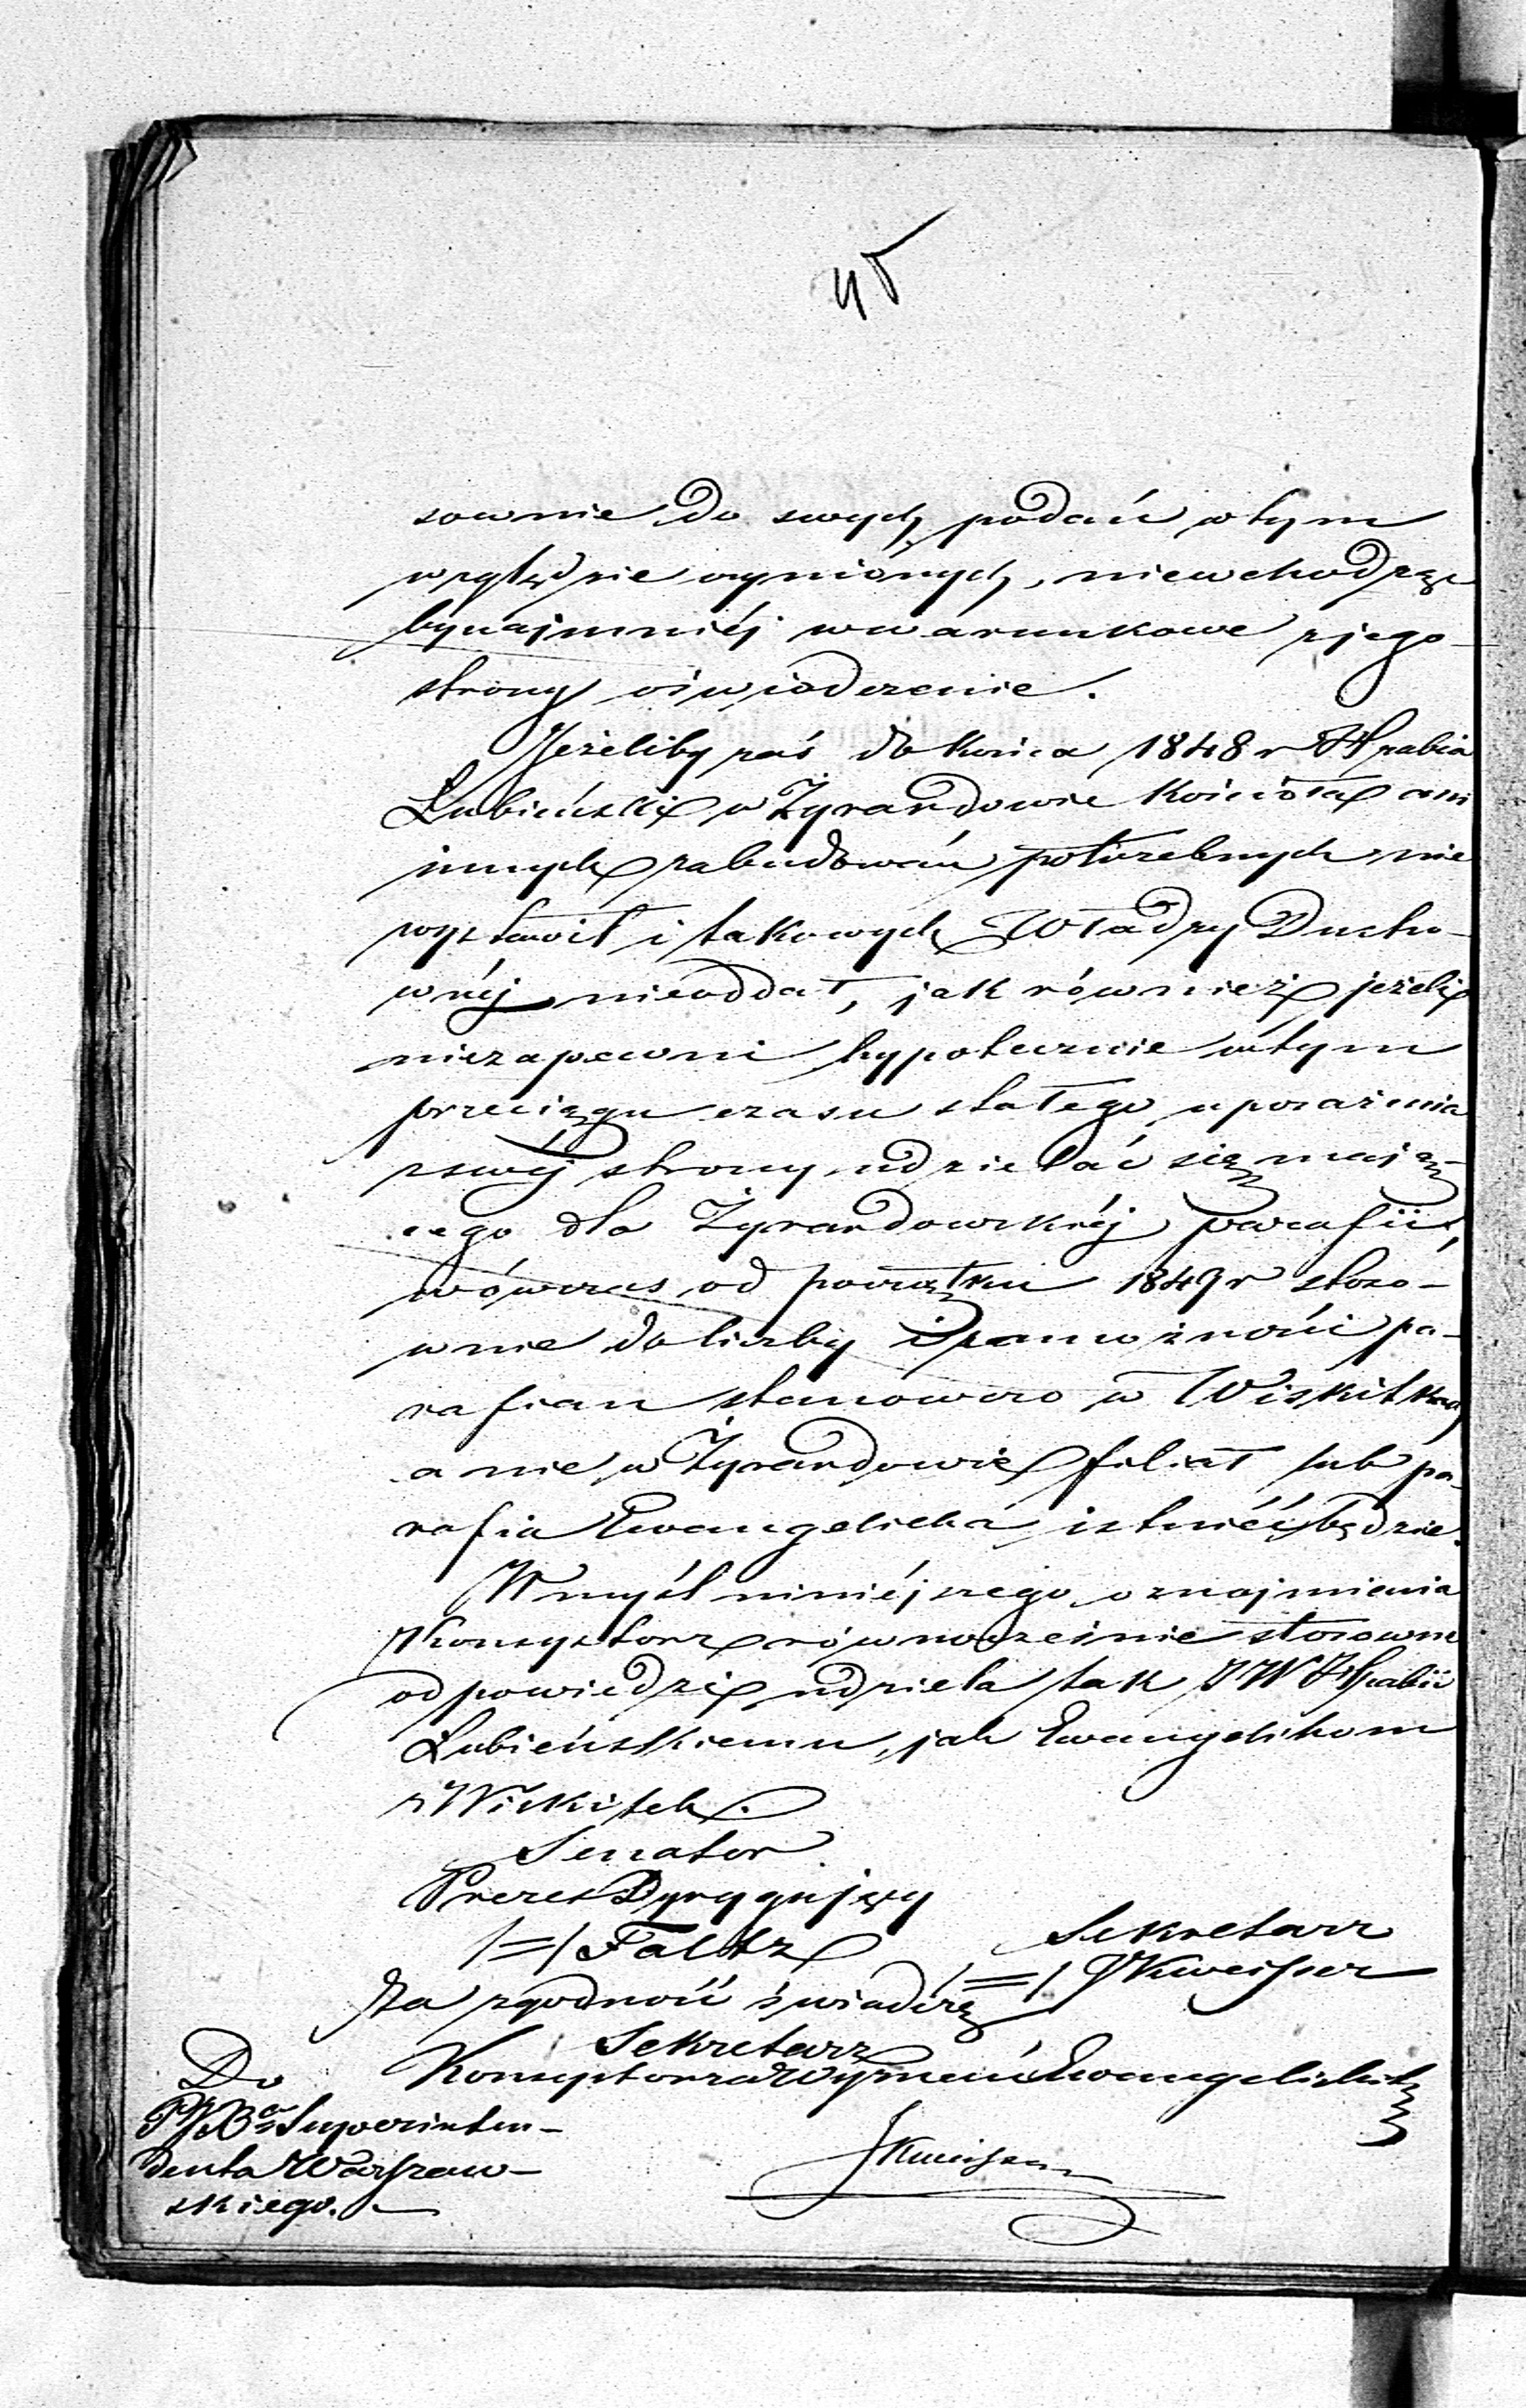 45
sownie do swych podań w tym
względzie czynionych, niewchodząc
bynajmniéj w warunkowe z jego
strony oświadczenie.
Jeżeliby zaś do końca 1848 r Hrabia
Łubieński w Żyrardowie Kościoła ani
innych zabudowań potrzebnych nie
wystawił i takowych Władzy Ducho-
wnéj nieoddał, jak również jeżeli
niezapewni hypotecznie w tym
przeciągu czasu stałego uposażenia
z swéj strony udzielać się mają-
cego dla Żyrardowskiéj parafii,
wówczas od początku 1849 r stoso-
wnie do liczby i zamożności pa-
rafian stanowczo w Wiskitkach
a nie w Żyrardowie filiał lub pa-
rafia Ewangelicka istniéć będzie.
W myśl niniéjszego oznajmienia
Konsystorz równocześnie stosowne
odpowiedzi udziela tak JW Hrabii
Łubieńskiemu, jak Ewangelikom
z Wiskitek.
Senator
Prezes Dyrygujący
/=/ Faltz
Sekretarz
/=/ Kweisser
Za zgodność świadczę
Sekretarz
Konsystorza Wyznań Ewangelickich
Kweisser
Do
Superinten-
denta Warszaw-
skiego.